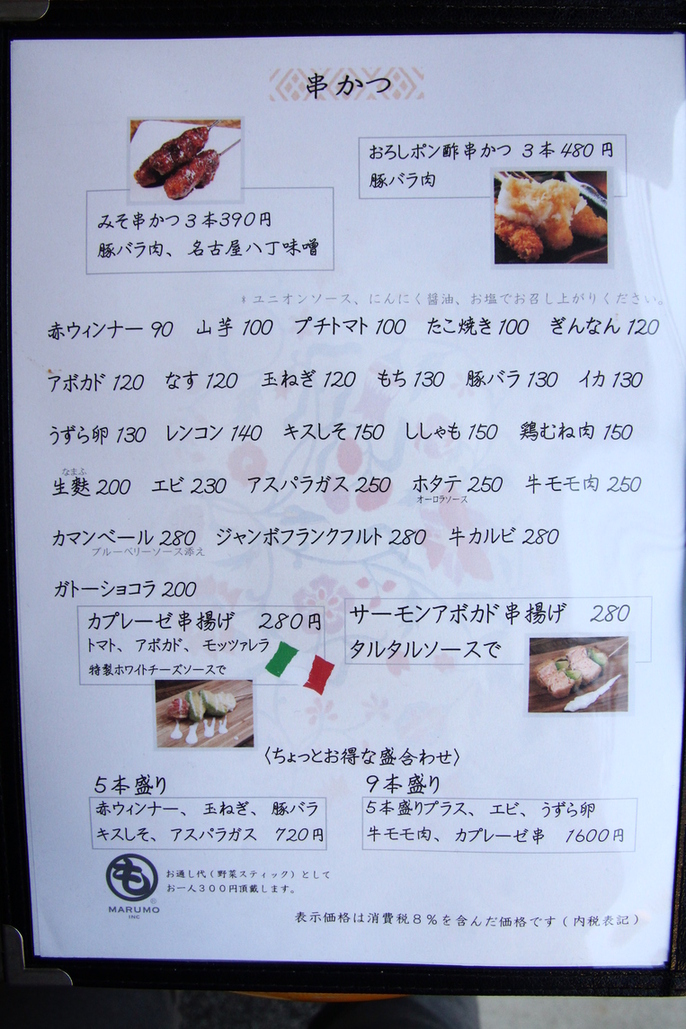 串かつ
おろしポン酢串かつ 3本480円
豚バラ肉
みそ串かつ3本390円
豚バラ肉、名古屋八丁味噌
*ユニオンソース、にんにく醤油、お塩でお召し上がりください。
赤ウィンナー 90 山芋 100 プチトマト 100 たこ焼き 100 ぎんなん 120
アボカド 120 なす 120 玉ねぎ 120 もち 130 豚バラ 130 イカ 130
うずら卵 130 レンコン 140 キスしそ 150 ししゃも 150 鶏むね肉 150
なまふ
生麩 200 エビ 230 アスパラガス 250 ホタテ 250 牛モモ肉 250
オーロラソース
カマンベール 280 ジャンボフランクフルト 280 牛カルビ 280
ブルーベリーソース添え
ガトーショコラ 200
カプレーゼ串揚げ 280円
トマト、アボカド、モッツァレラ
特製ホワイトチーズソースで
サーモンアボカド串揚げ 280
タルタルソースで
〈ちょっとお得な盛合わせ〉
5本盛り
赤ウィンナー、玉ねぎ、豚バラ
キスしそ、アスパラガス 720円
9本盛り
5本盛りプラス、エビ、うずら卵
牛モモ肉、カプレーゼ串 1600円
も
®
MARUMO
INC
お通し代(野菜スティック)として
お一人300円頂戴します。
表示価格は消費税8%を含んだ価格です(内税表記)